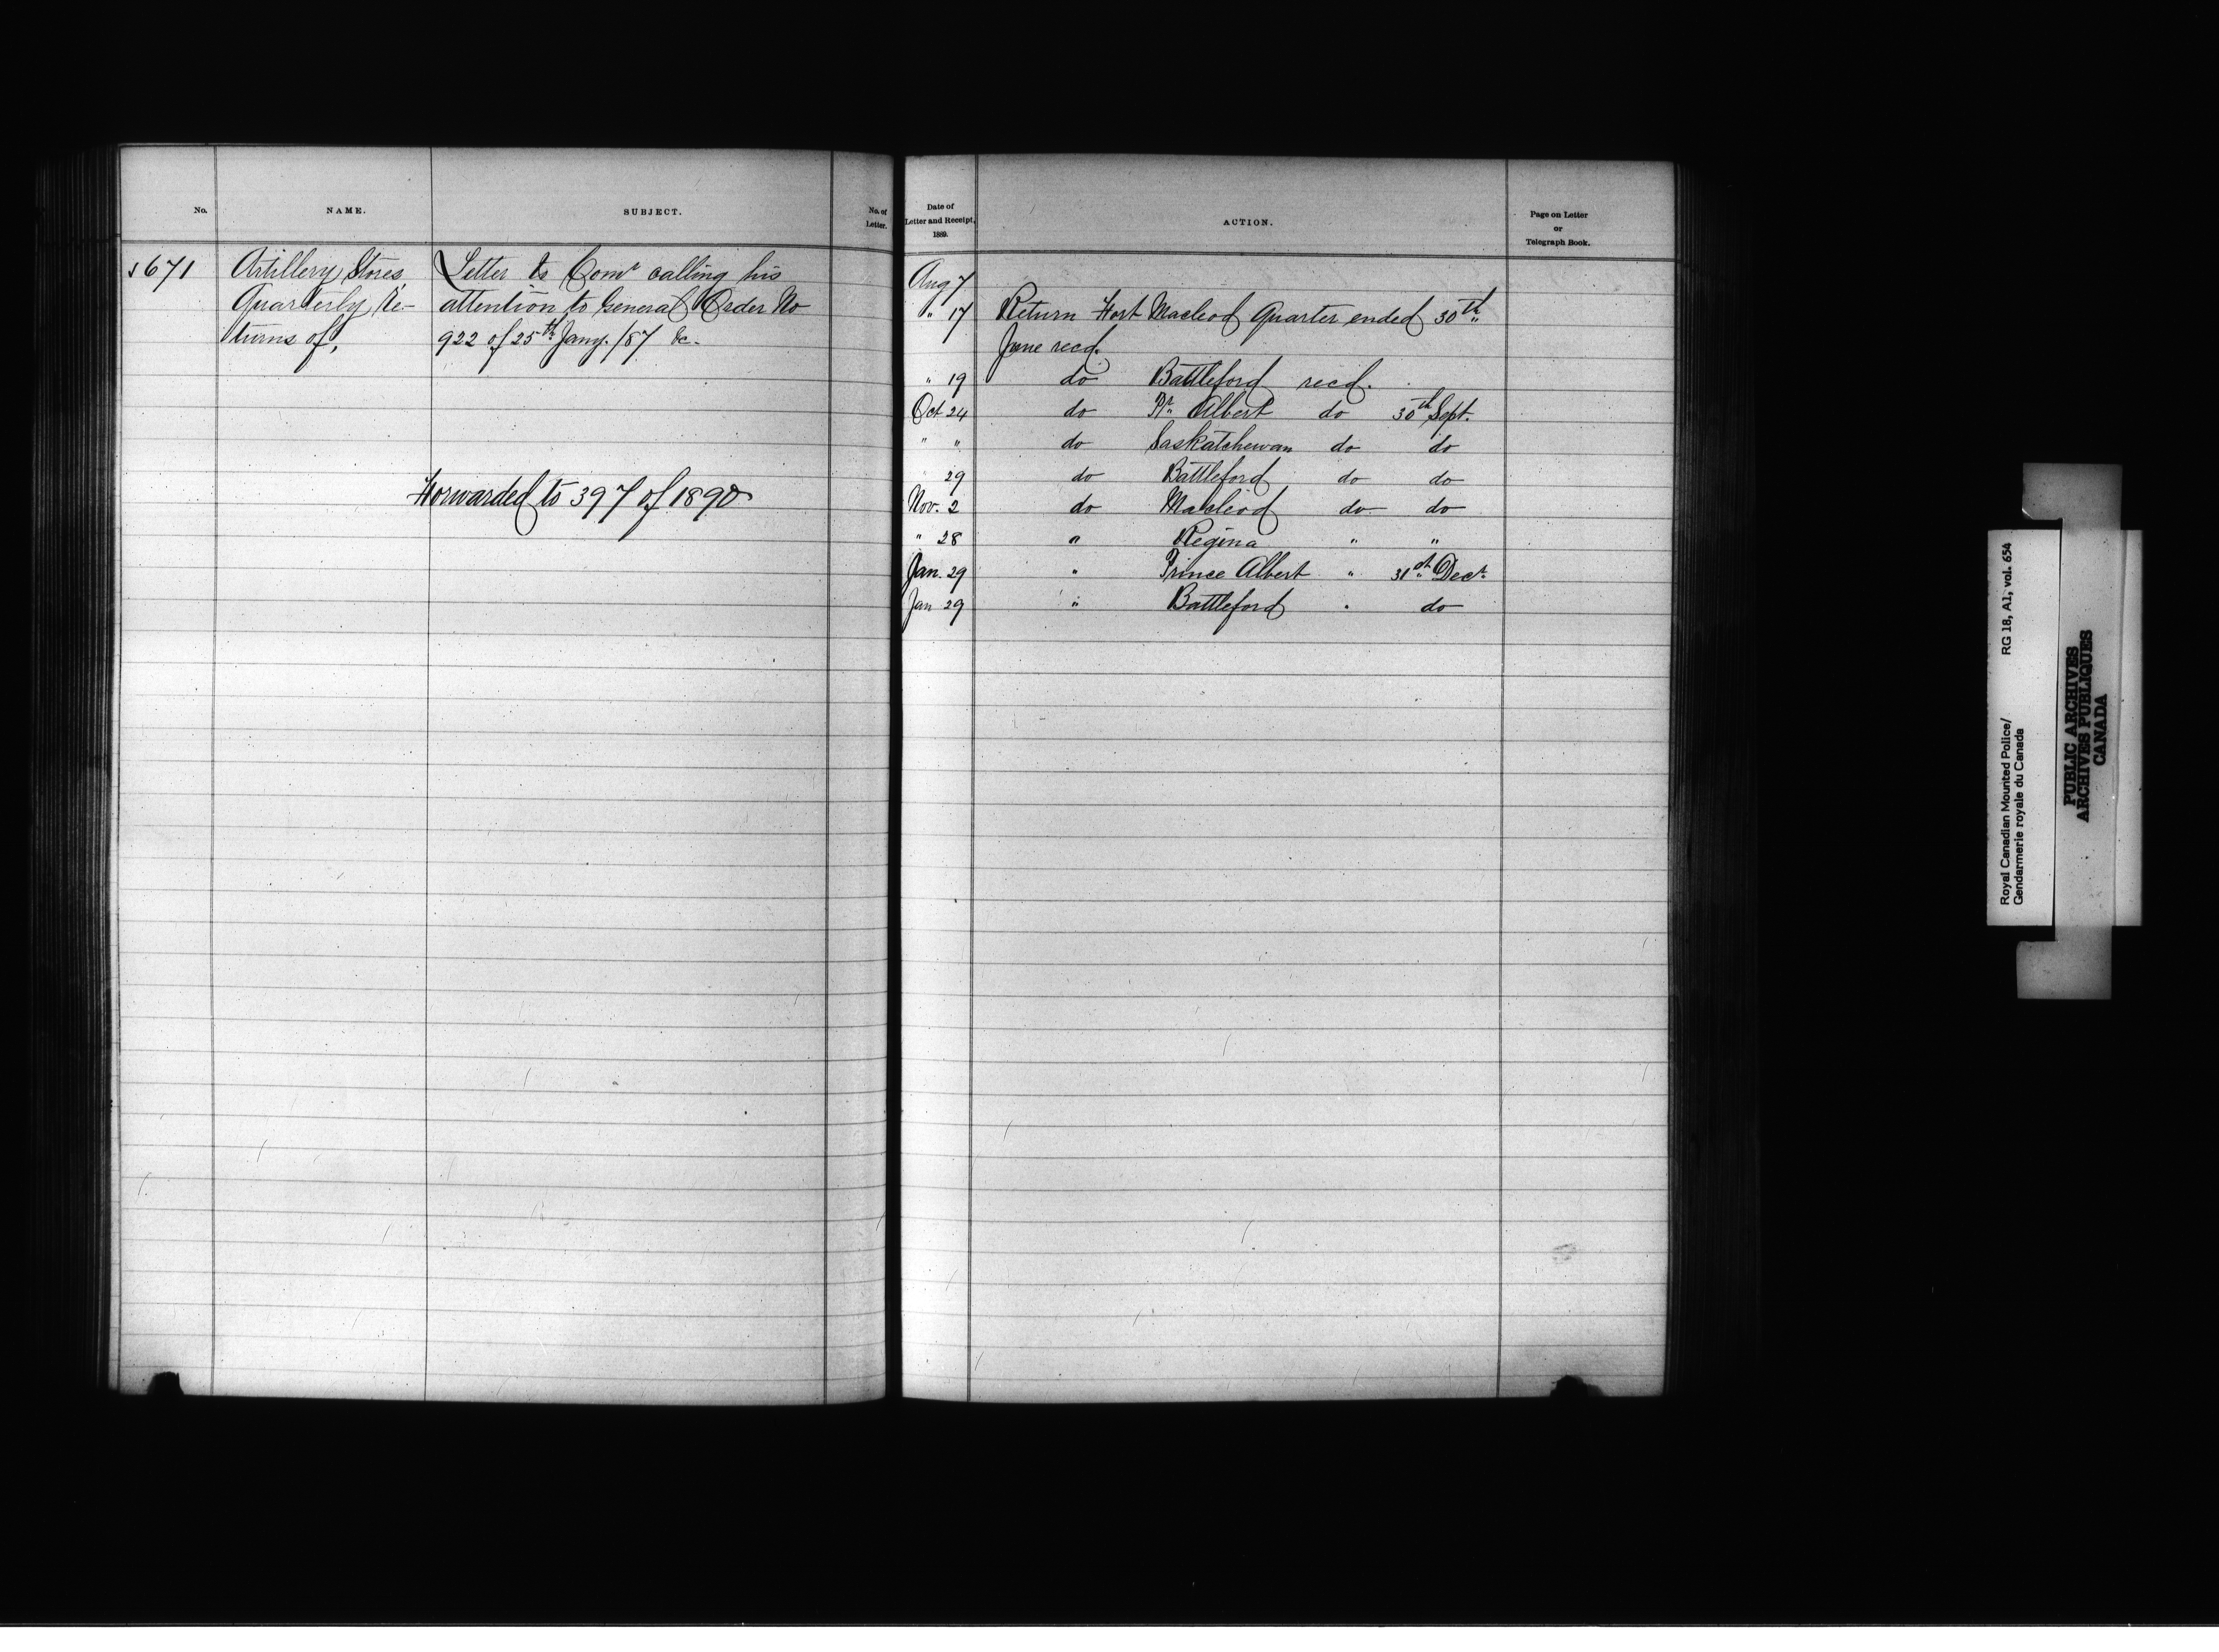 No. NAME. SUBJECT. No. of Letter.
671 Artillery Stores, Letter to Comr calling his
Quarterly Re- attention to General Order No
turns of, 922 of 25th Jany. /87 &c.
Forwarded to 397 of 1890
Date of Letter and Receipt, 1889. ACTION. Page on Letter or Telegraph Book.
Aug 7
" 17 Return Fort Macleod Quarter ended 30th
June recd.
" 19 do Battleford recd.
Oct 24 do Pr. Albert do 30th Sept.
" " do Saskatchewan do do
" 29 do Battleford do do
Nov. 2 do Macleod do do
" 28 " Regina " "
Jan. 29 " Prince Albert " 31st Decr.
Jan 29 " Battleford " do
Royal Canadian Mounted Police/
Gendarmerie royale du Canada
RG 18, A1, vol. 654
PUBLIC ARCHIVES
ARCHIVES PUBLIQUES
CANADA